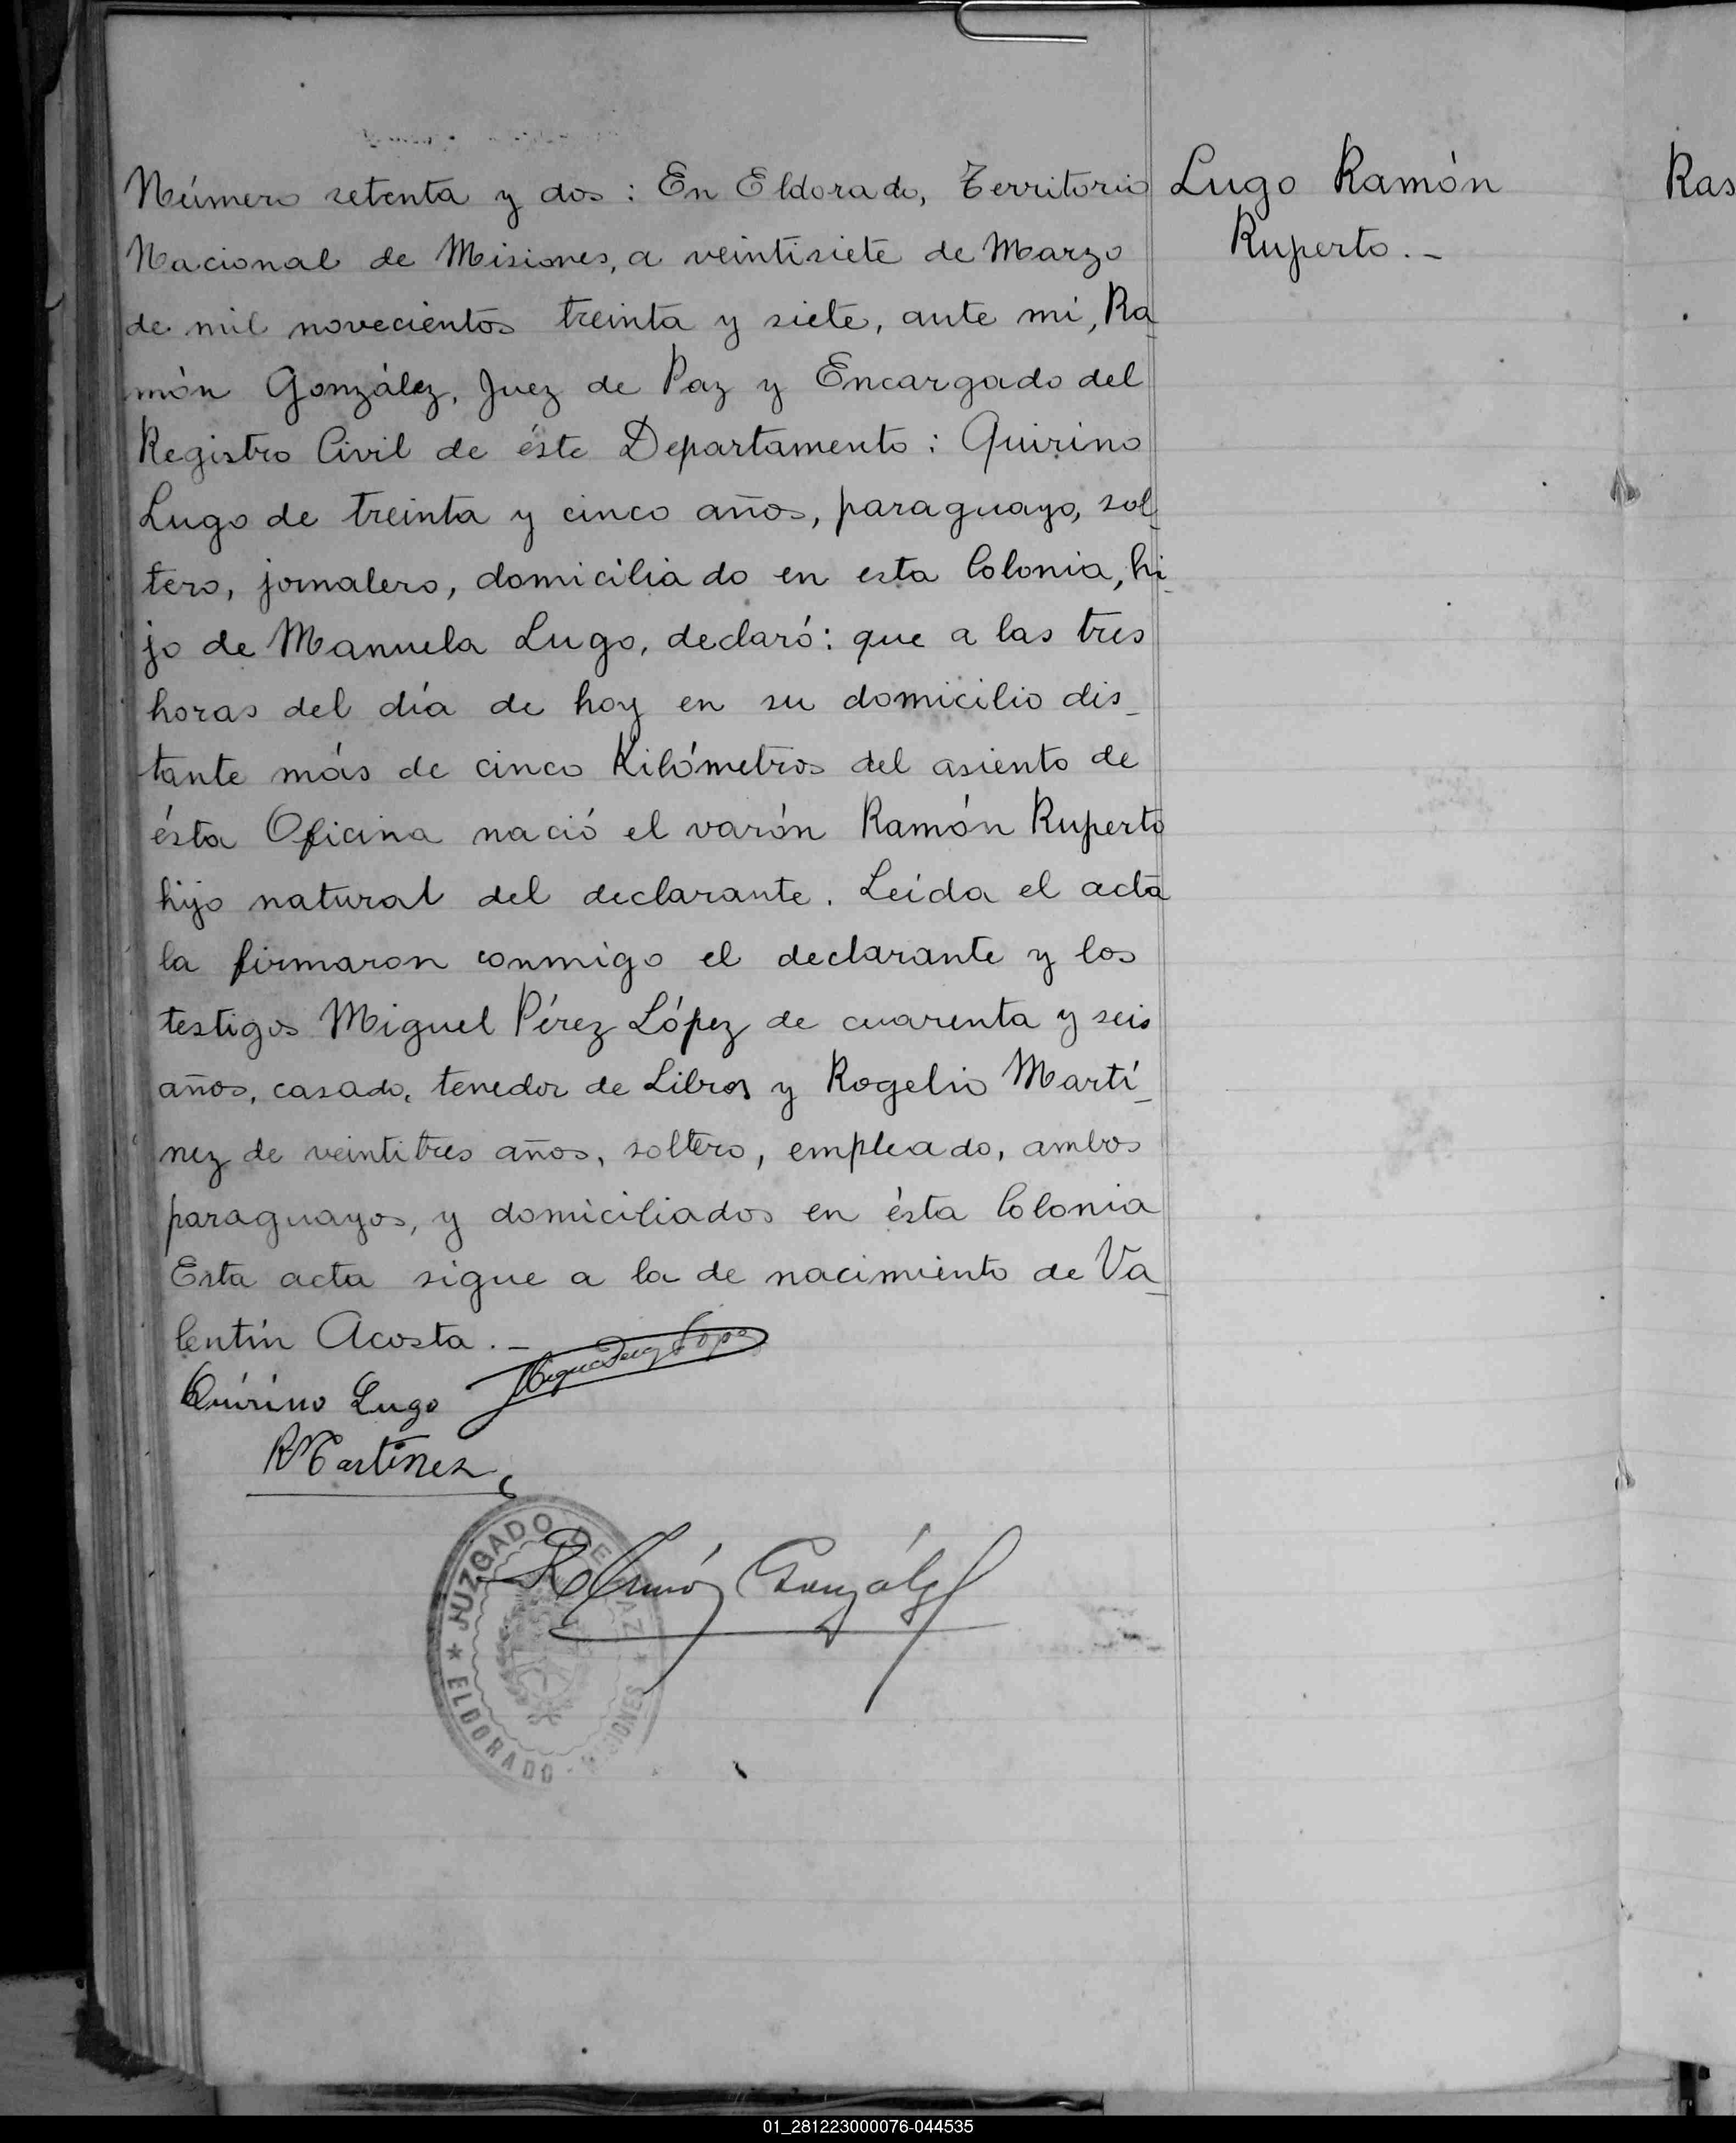 Número setenta y dos : En Eldorado, Territorio
Nacional de Misiones, a veintisiete de Marzo
de mil novecientos treinta y siete, ante mi, Ra_
món González, Juez de Paz y Encargado del
Registro Civil de éste Departamento : Quirino
Lugo de treinta y cinco años, paraguayo, sol_
tero, jornalero, domiciliado en esta Colonia, hi_
jo de Manuela Lugo, declaró: que a las tres
horas del día de hoy en su domicilio dis_
tante más de cinco Kilómetros del asiento de
ésta Oficina nació el varón Ramón Ruperto
hijo natural del declarante. Leída el acta
la firmaron conmigo el declarante y los
testigos Miguel Pérez López de cuarenta y seis
años, casado, tenedor de Libros y Rogelio Martí_
nez de veintitres años, soltero, empleado, ambos
paraguayos, y domiciliados en ésta Colonia
Esta acta sigue a la de nacimiento de Va_
lentín Acosta._
Miguel Perez Lopez
Quirino Lugo
RMartinez
Ramón González
JUZGADO DE PAZ
★ ELDORADO - MISIONES ★
Lugo Ramón
Ruperto._
Ras
01_281223000076-044535